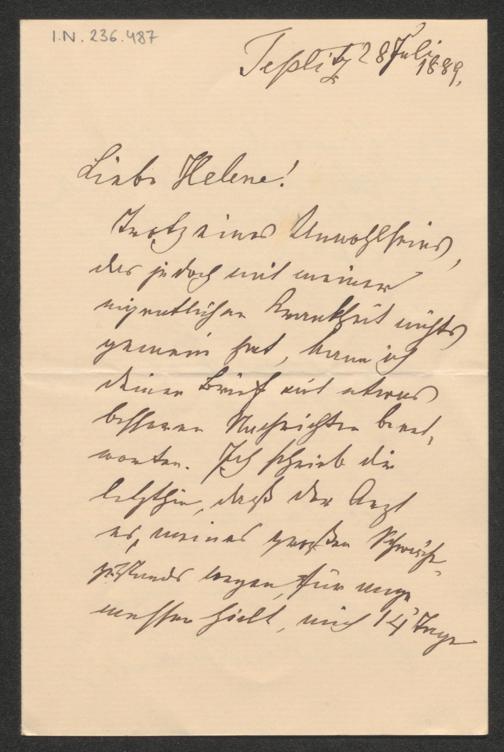 I.N. 236.487
Teplitz 28 Juli
1889,
Liebe Helene!
Trotz eines Unwohlseins,
das jedoch mit meiner
eigentlichen Krankheit nichts
gemein hat, kann ich
deinen Brief mit etwas
besseren Nachrichten beant,
worten. Ich schrieb dir
letzthin, daß der Arzt
es, meines großen Schwäche-
zustands wegen, für ange
messen hielt, mich 14 Tage